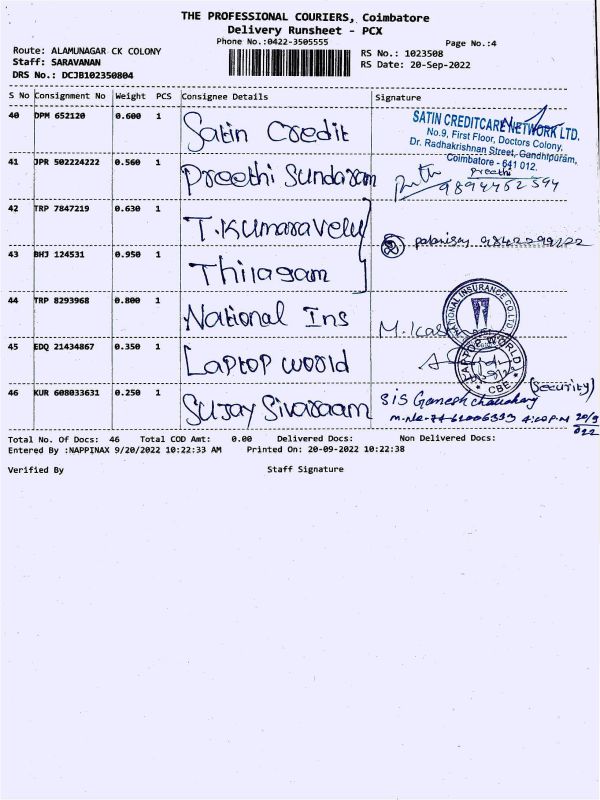 THE PROFESSIONAL COURIERS, Coimbatore
Delivery Runsheet - PCX
Phone No.:0422-3505555 Page No.:4
Route: ALAMUNAGAR CK COLONY RS No.: 1023508
Staff: SARAVANAN RS Date: 20-Sep-2022
DRS No.: DCJB102350804
S No Consignment No Weight PCS Consignee Details Signature
40 DPM 652120 0.600 1 Satin Credit
SATIN CREDITCARE NETWORK LTD.
No.9, First Floor, Doctors Colony,
Dr. Radhakrishnan Street, Gandhipuram,
Coimbatore - 641 012.
41 JPR 502224222 0.560 1 Preethi Sundaram Preethi
9894462594
42 TRP 7847219 0.630 1 T.Kumaravelu
palanisamy
43 BHJ 124531 0.950 1 Thilagam
44 TRP 8293968 0.800 1 National Ins
NATIONAL INSURANCE CO.LTD
45 EDQ 21434867 0.350 1 Laptop world
LAPTOP WORLD
CBE
46 KUR 608033631 0.250 1 Sujay Sivaraam SIS Ganesh (Security)
Total No. Of Docs: 46 Total COD Amt: 0.00 Delivered Docs: Non Delivered Docs:
Entered By :NAPPINAX 9/20/2022 10:22:33 AM Printed On: 20-09-2022 10:22:38
Verified By Staff Signature